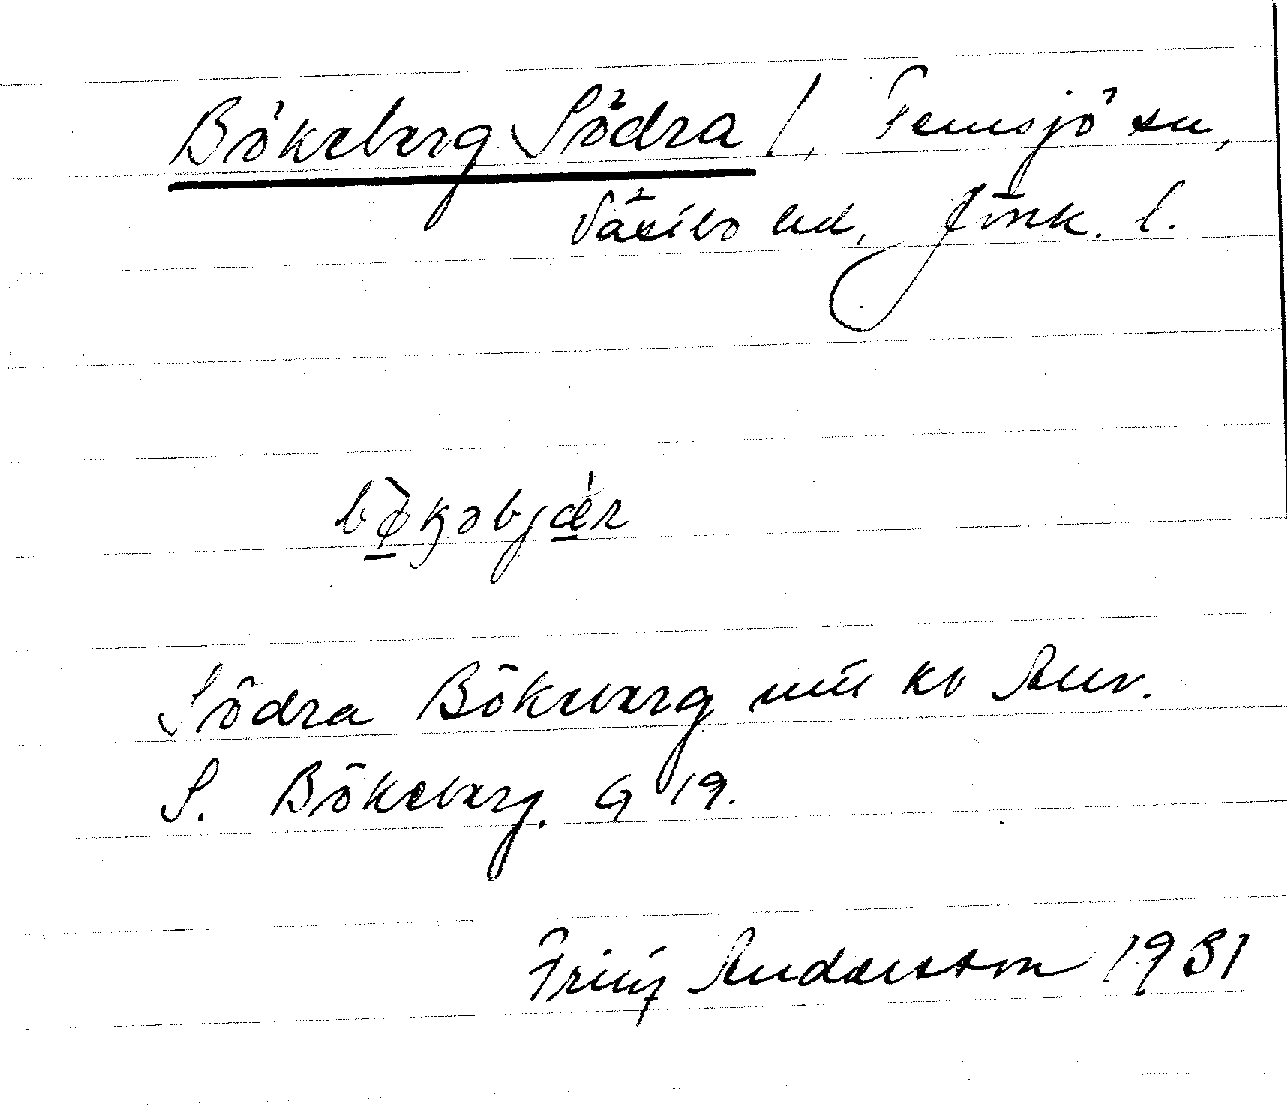 Bökeberg Södra /, Femsjö sn,
Västbo hd, Jönk. l.
bø̀kəbjæ̀r
Södra Bökeberg mtl kb Anv.
S. Bökeberg. G 19.
Frinz Andersson 1931